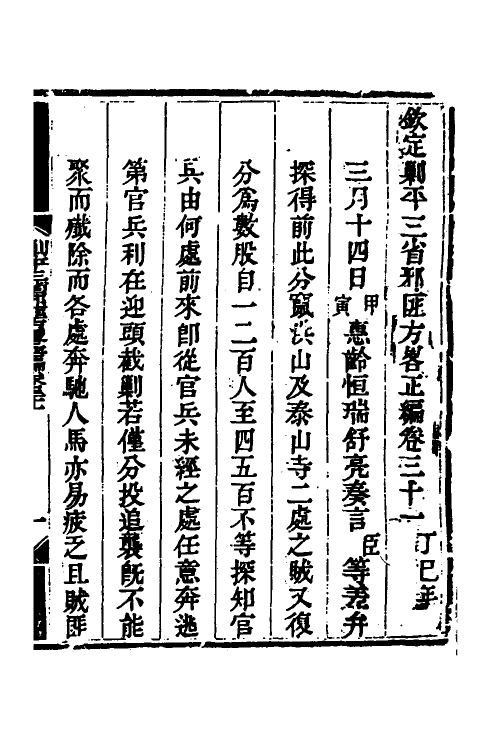 欽定剿平三省邪匪方畧正編卷三十一
丁巳年
三月十四日甲寅惠齡恒瑞舒亮奏言臣等差弁
探得前此分竄洪山及泰山寺二處之賊又復
分爲數股自一二百人至四五百不等探知官
兵由何處前來卽從官兵未經之處任意奔逃
第官兵利在迎頭截剿若僅分投追襲旣不能
聚而殲除而各處奔馳人馬亦易疲乏且賊匪